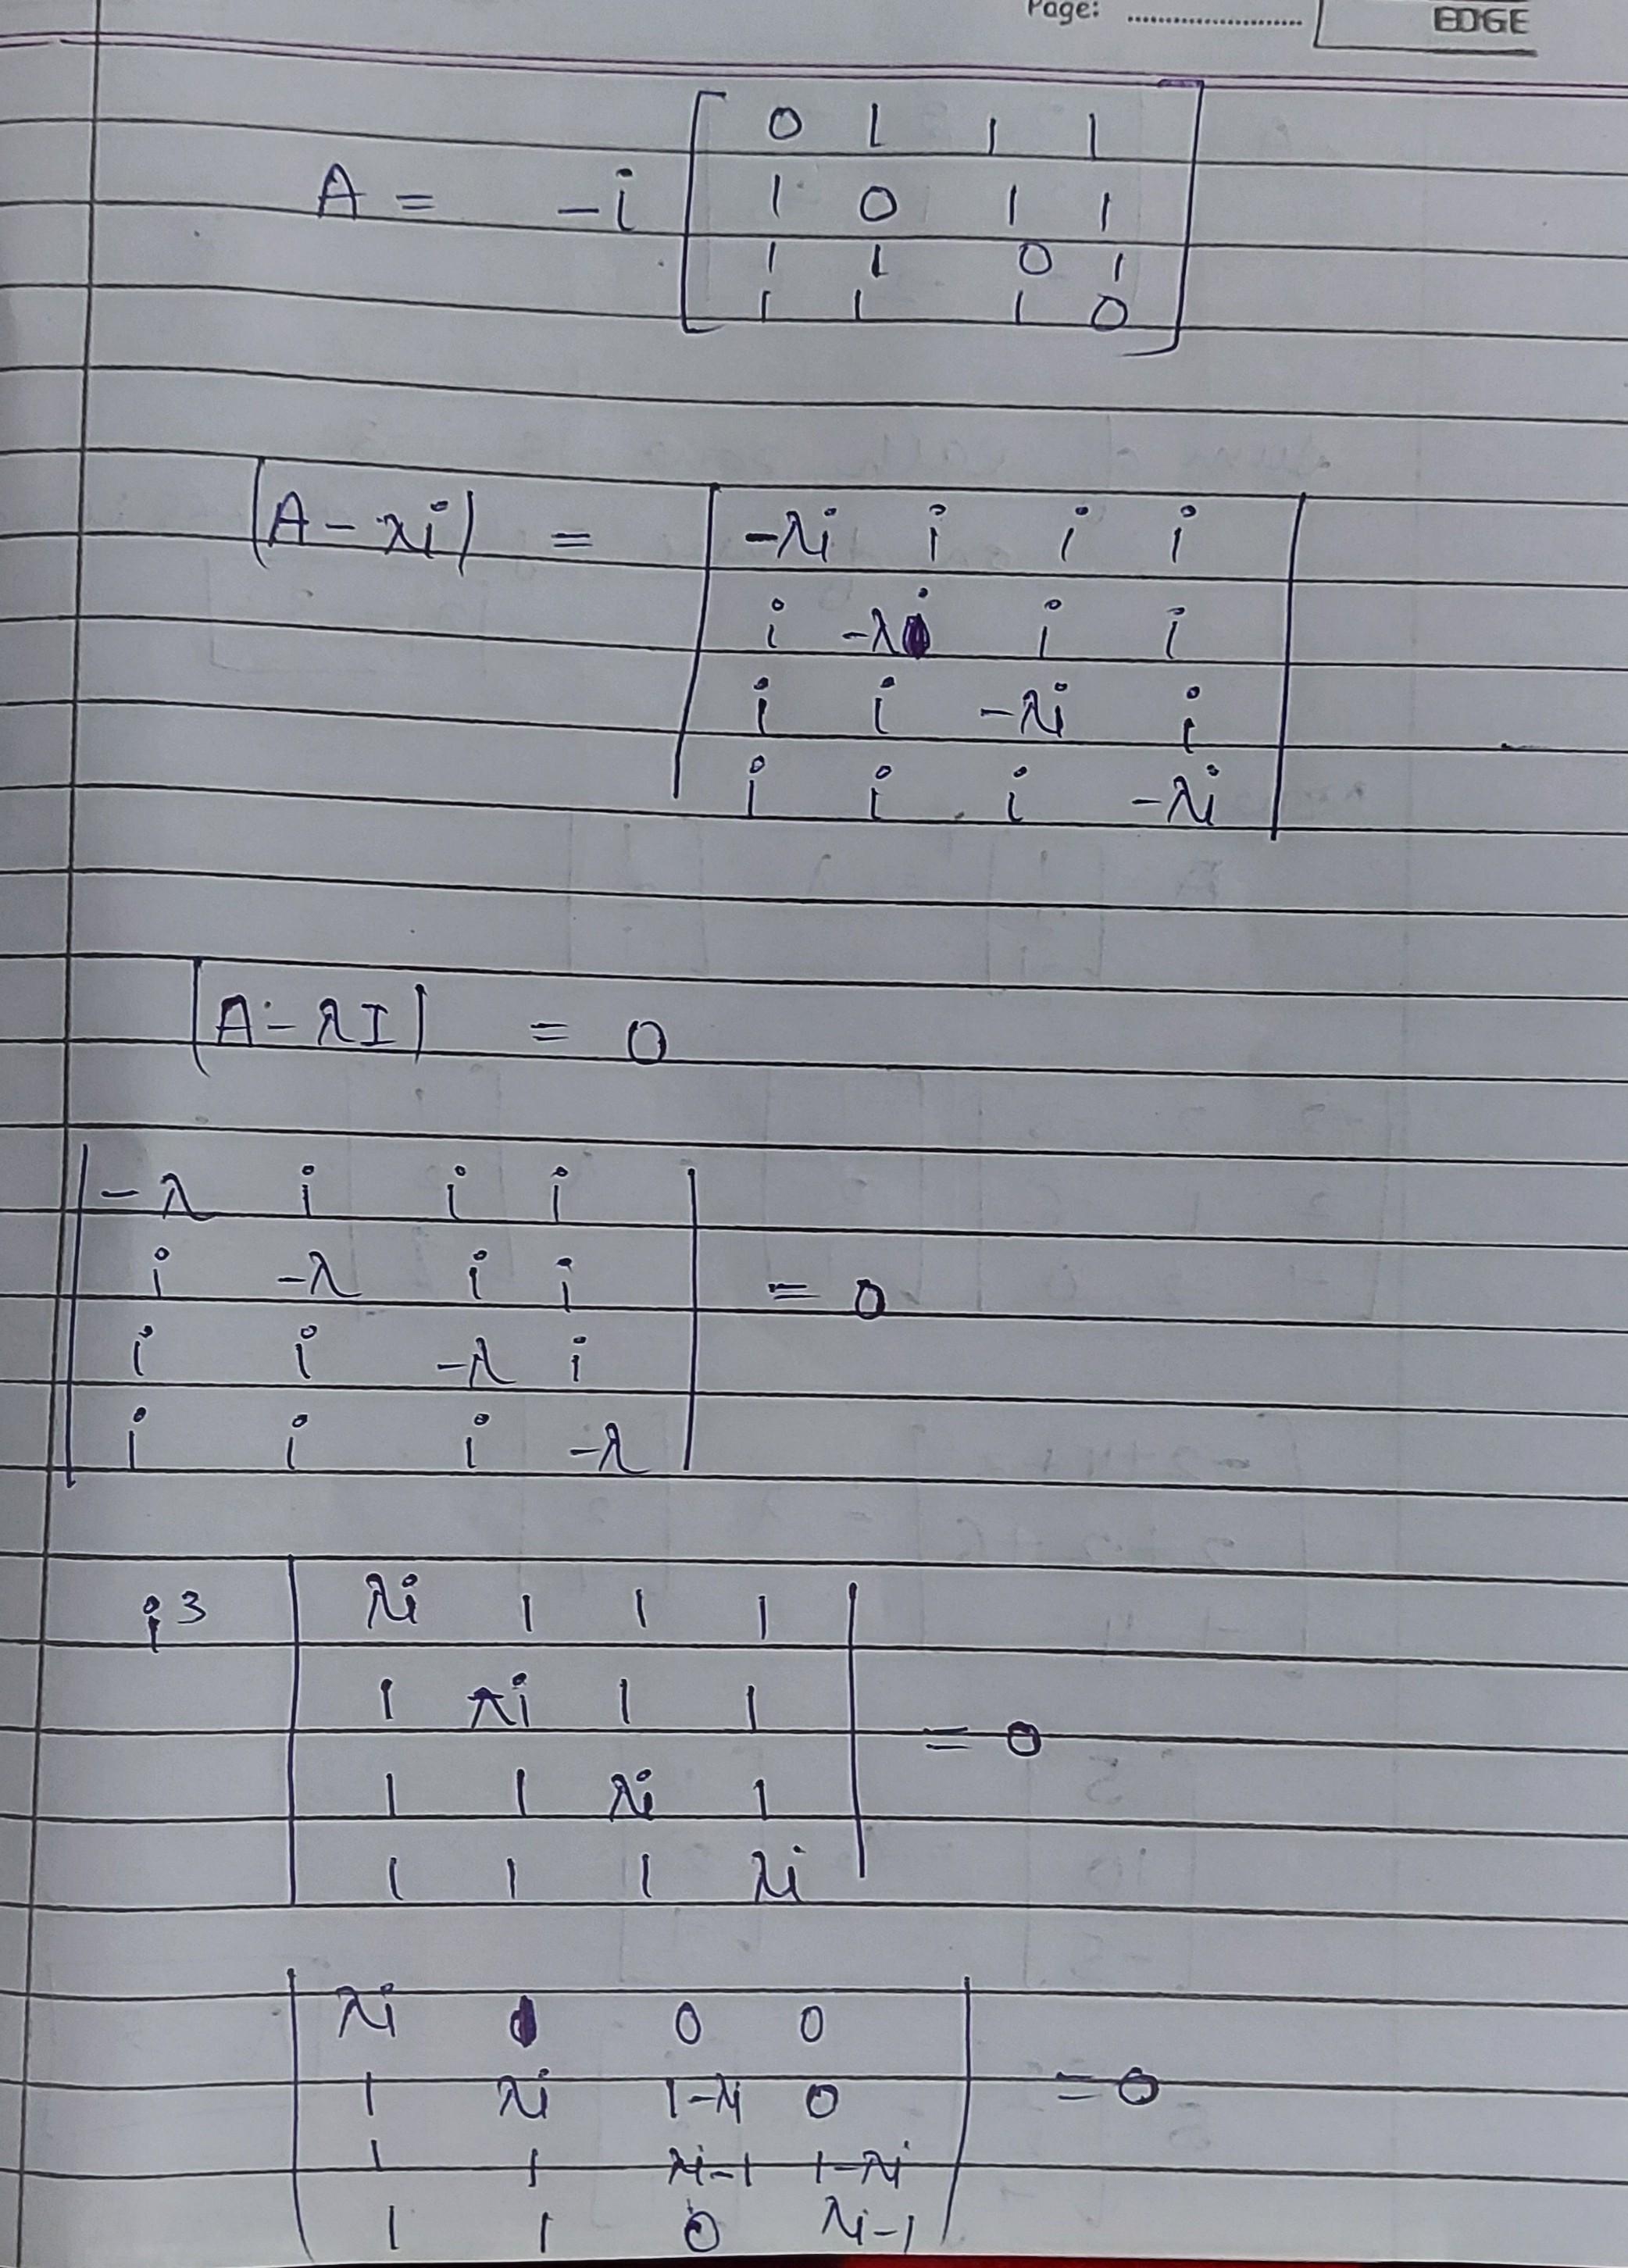 Page: ........................ EDGE
A = -i [ 0 1 1 1
1 0 1 1
1 1 0 1
1 1 1 0 ]
|A - λi| = | -λi i i i |
| i -λi i i |
| i i -λi i |
| i i i -λi |
|A - λI| = 0
| -λ i i i |
| i -λ i i | = 0
| i i -λ i |
| i i i -λ |
i³ | λi 1 1 1 |
| 1 λi 1 1 | = 0
| 1 1 λi 1 |
| 1 1 1 λi |
| λi 0 0 |
| 1 λi 1-λi 0 | = 0
| 1 1 λi-1 1-λi |
| 1 1 0 λi-1 |